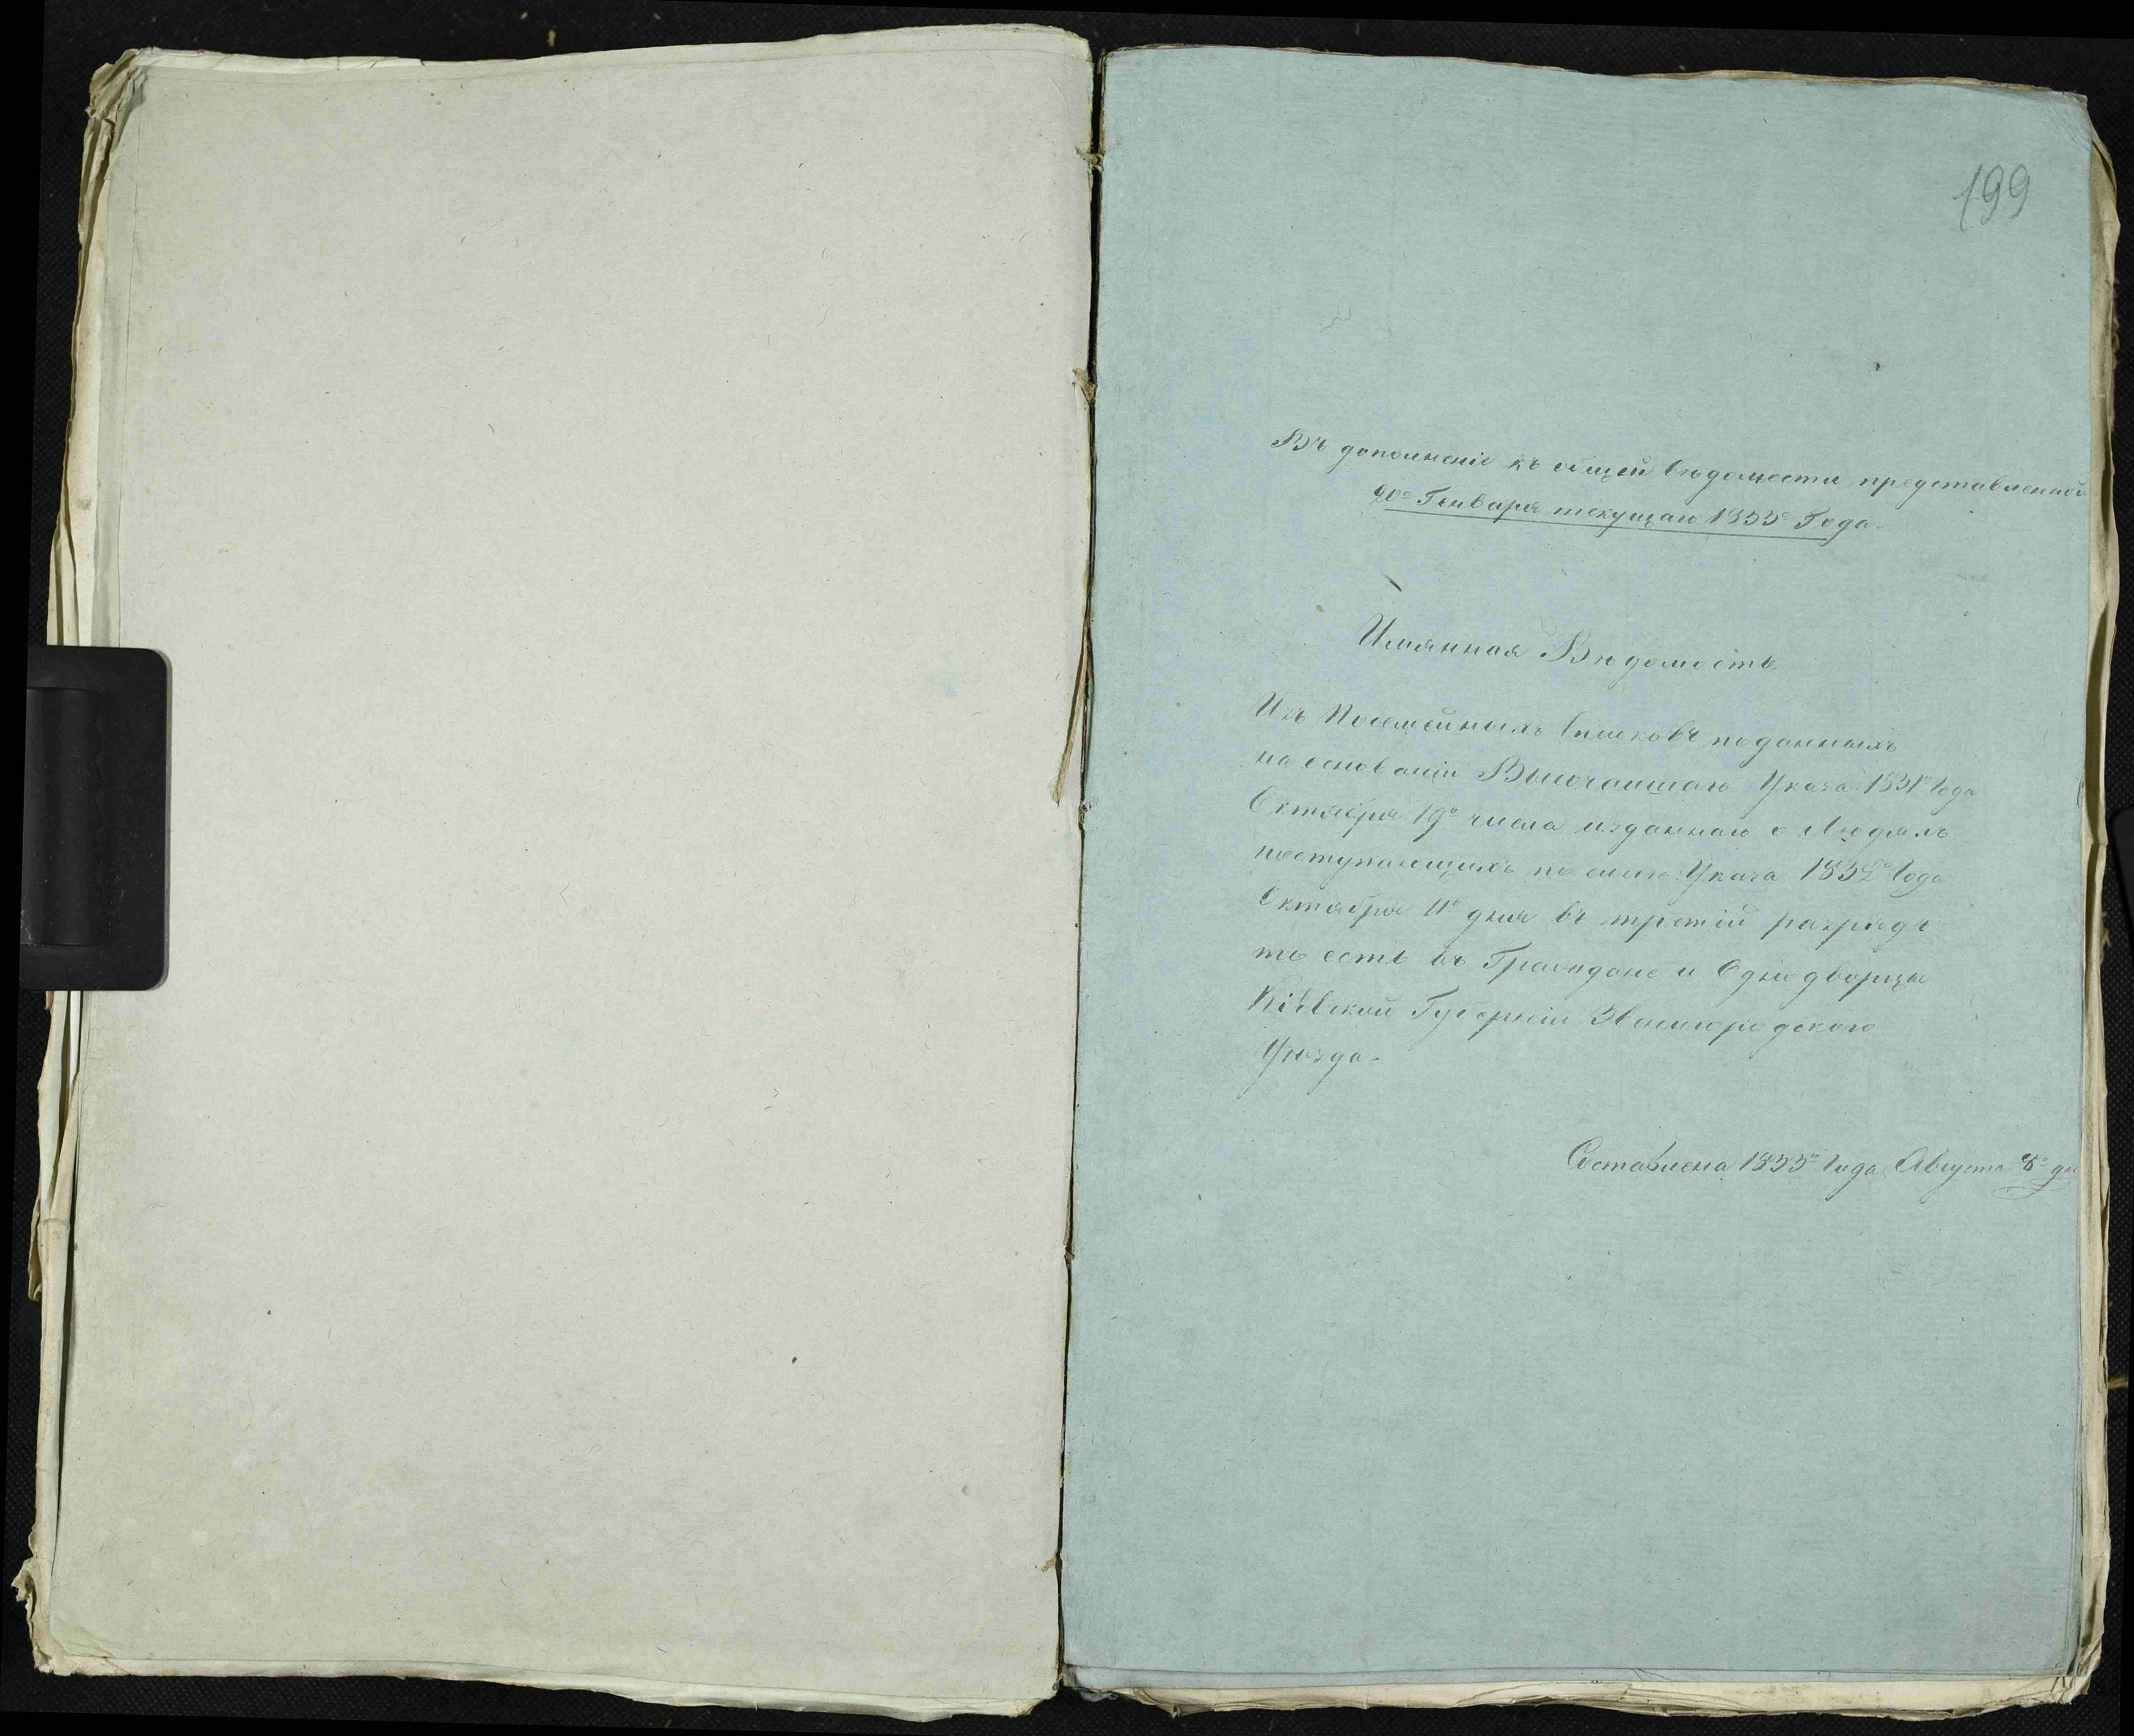 199
Въ дополненіе къ общей вѣдомости представленной
20го Генваря текущаго 1833го Года
Имянная Вѣдомость
Изъ Посемейныхъ списковъ поданныхъ
на основаніи Высочаишаго Указа 1831го Года
Октября 19го числа изданнаго о Людяхъ
поступающихъ по силѣ Указа 1832го Года
Октября 11го дня въ третій разрядъ
то есть въ Граждане и Однодворцы
Кіевской Губерніи Звенигородского
Уѣзда
Составлена 1833го Года Августа 8го дн